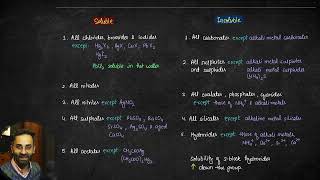 Soluble
1. All chlorides, bromides & iodides
except Hg₂X₂, AgX, CuX, PbX₂
HgI₂
PbCl₂ soluble in hot water
2. All nitrates
3. All nitrites except AgNO₂
4. All sulphates except PbSO₄, BaSO₄
SrSO₄, Ag₂SO₄
CaSO₄
5. All acetates except CH₃COOAg
(CH₃COO)₂Hg₂
Insoluble
1. All carbonates except alkali metal carbonates
2. All sulphites except alkali metal sulphites
and sulphides
(NH₄)₂S
3. All oxalates, phosphates, cyanides
except those of NH₄⁺ & alkali metals
4. All silicates except alkaline metal silicates
5. Hydroxides except those of alkali metals
NH₄⁺, Ba²⁺, Sr²⁺, Ca²⁺
Solubility of 2-block hydroxides
↑ down the group.